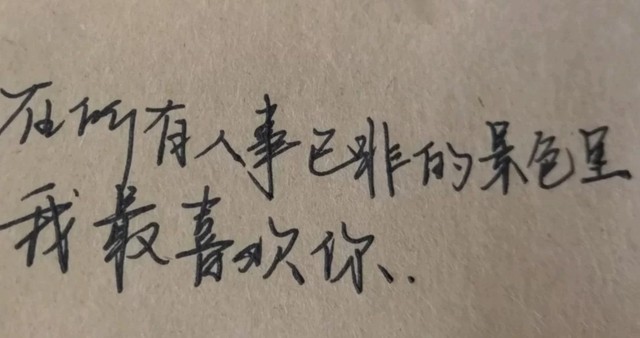 在所有人事已非的景色里
我最喜欢你.